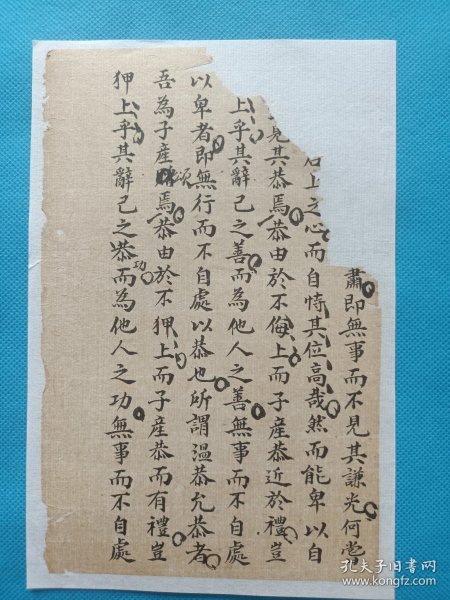 肅即無事而不見其謙光何嘗
君上之心而自恃其位高哉然而能卑以自
見其恭焉恭由於不侮上而子産恭近於禮豈
上乎其辭己之善而為他人之善無事而不自處
以卑者即無行而不自處以恭也所謂温恭允恭者
吾為子産頌焉恭由於不狎上而子産恭而有禮豈
狎上乎其辭己之恭功而為他人之功無事而不自處
孔夫子旧书网
www.kongfz.com